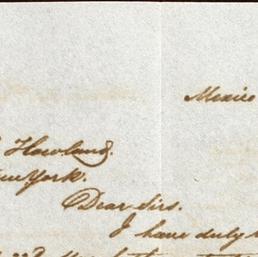 Mexico
Howland.
New York.
Dear Sirs.
I have duly